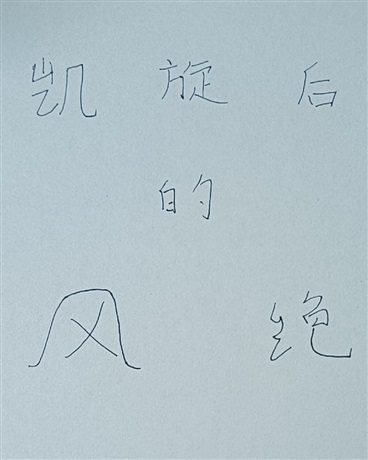 凯旋后
的
风绝